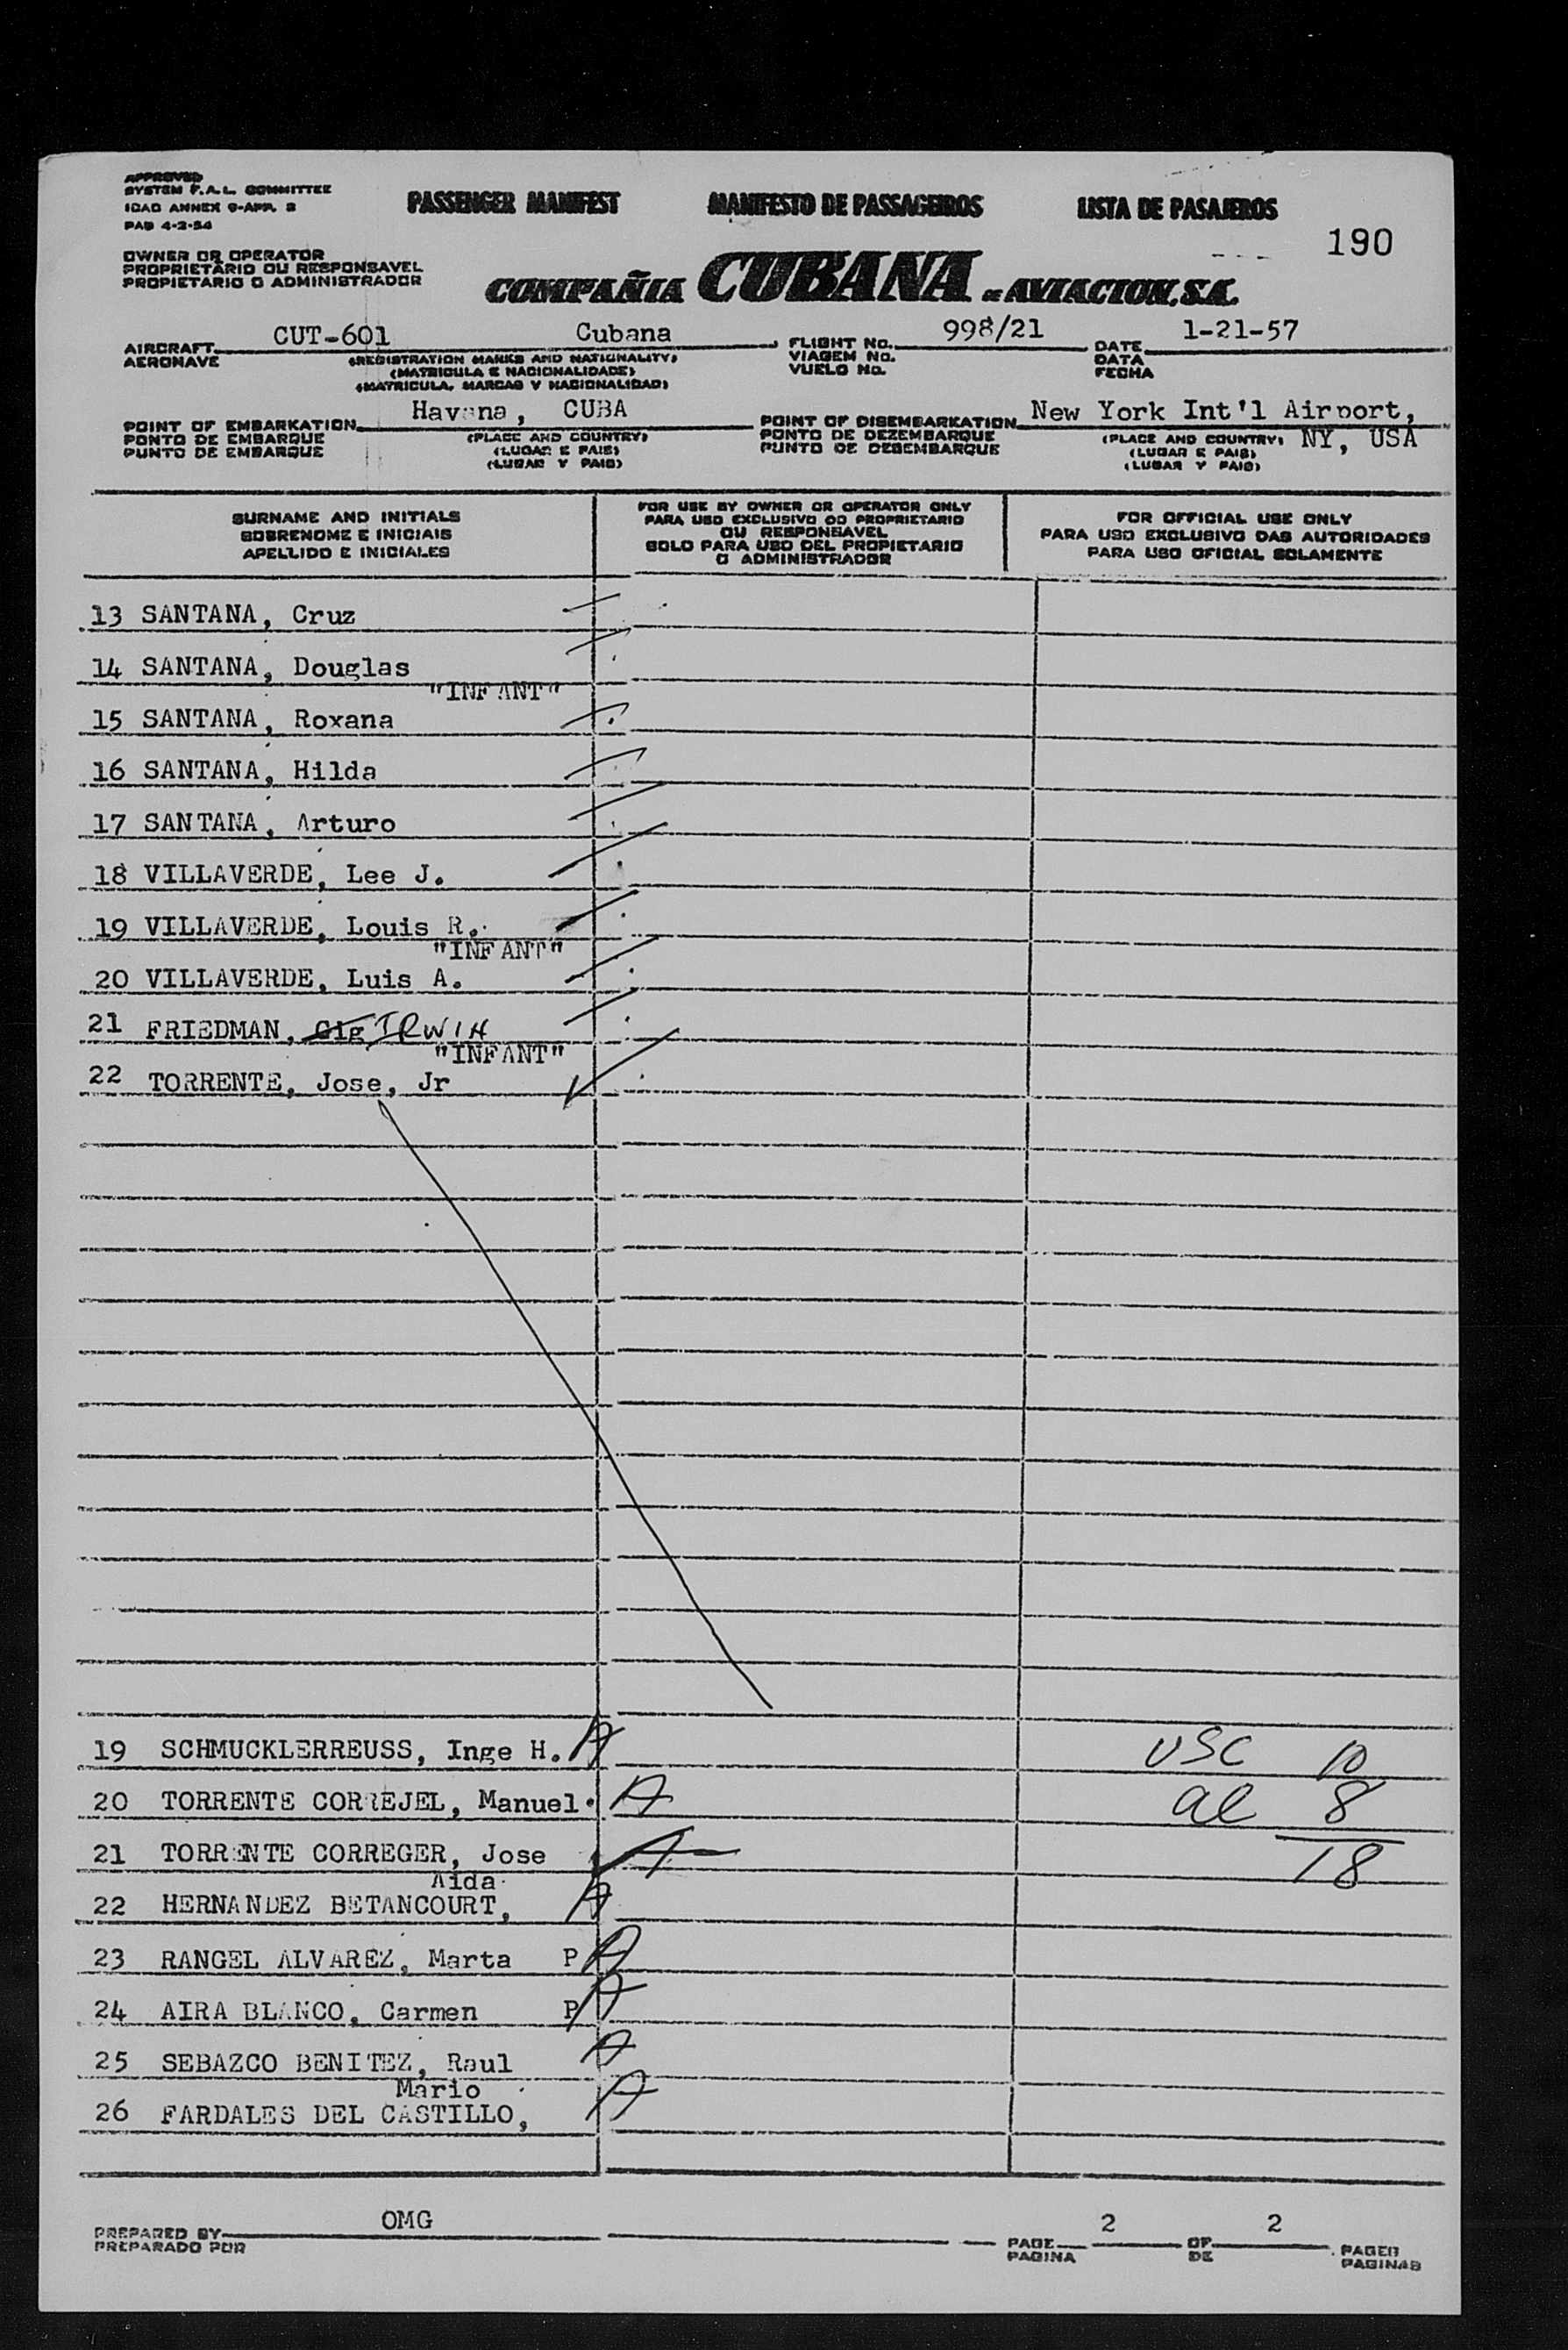 APPROVED
SYSTEM F.A.L. COMMITTEE
ICAO ANNEX 9-APP. 3
PAB 4-2-54
PASSENGER MANIFEST MANIFESTO DE PASSAGEIROS LISTA DE PASAJEROS
190
OWNER OR OPERATOR
PROPRIETÁRIO OU RESPONSAVEL
PROPIETARIO O ADMINISTRADOR
COMPAÑIA CUBANA DE AVIACION, S.A.
AIRCRAFT CUT-601 Cubana FLIGHT No. 998/21 DATE 1-21-57
AERONAVE (REGISTRATION MARKS AND NATIONALITY) VIAGEM No. DATA
(MATRICULA E NACIONALIDADE) VUELO No. FECHA
(MATRICULA, MARCAS Y NACIONALIDAD)
POINT OF EMBARKATION Havana, CUBA POINT OF DISEMBARKATION New York Int'l Airport,
PONTO DE EMBARQUE (PLACE AND COUNTRY) PONTO DE DEZEMBARQUE (PLACE AND COUNTRY) NY, USA
PUNTO DE EMBARQUE (LUGAR E PAIS) PUNTO DE DESEMBARQUE (LUGAR E PAIS)
(LUGAR Y PAIS) (LUGAR Y PAIS)
SURNAME AND INITIALS
SOBRENOME E INICIAIS
APELLIDO E INICIALES
FOR USE BY OWNER OR OPERATOR ONLY
PARA USO EXCLUSIVO DO PROPRIETARIO
OU RESPONSAVEL
SOLO PARA USO DEL PROPIETARIO
O ADMINISTRADOR
FOR OFFICIAL USE ONLY
PARA USO EXCLUSIVO DAS AUTORIDADES
PARA USO OFICIAL SOLAMENTE
13 SANTANA, Cruz
14 SANTANA, Douglas
"INFANT"
15 SANTANA, Roxana
16 SANTANA, Hilda
17 SANTANA, Arturo
18 VILLAVERDE, Lee J.
19 VILLAVERDE, Louis R.
"INFANT"
20 VILLAVERDE, Luis A.
21 FRIEDMAN, Gig IRWIN
"INFANT"
22 TORRENTE, Jose, Jr
19 SCHMUCKLERREUSS, Inge H. A USC 10
20 TORRENTE CORREJEL, Manuel A al 8
21 TORRENTE CORREGER, Jose A 18
Aida
22 HERNANDEZ BETANCOURT, A
23 RANGEL ALVAREZ, Marta P A
24 AIRA BLANCO, Carmen P A
25 SEBAZCO BENITEZ, Raul A
Mario
26 FARDALES DEL CASTILLO, A
PREPARED BY OMG PAGE 2 OF 2 PAGES
PREPARADO POR PAGINA DE PAGINAS